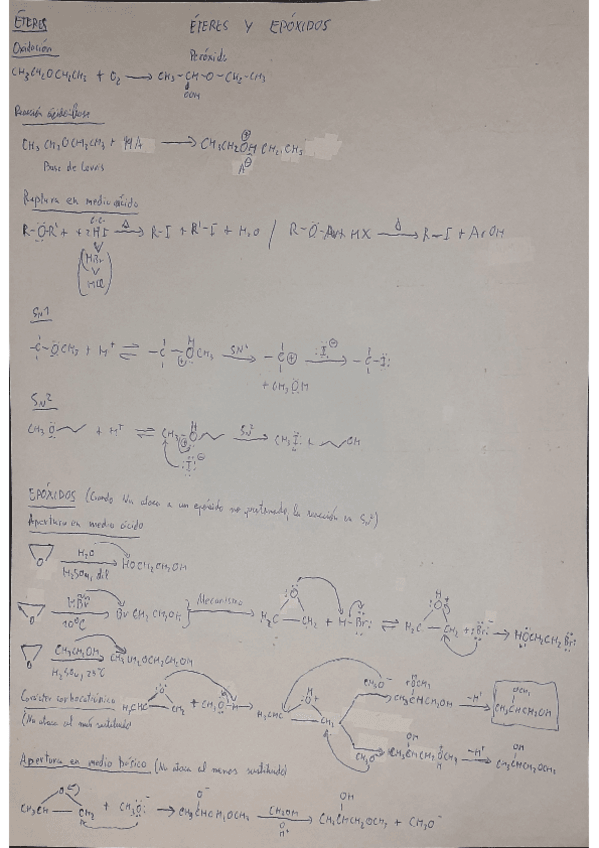 ÉTERES
ÉTERES Y EPÓXIDOS
Oxidación
Peróxido
CH₃CH₂OCH₂CH₃ + O₂ → CH₃-CH-O-CH₂-CH₃
OOH
Reacción ácido-base
CH₃CH₂OCH₂CH₃ + HA → CH₃CH₂OH CH₂CH₃
⊕
Base de Lewis
A⊖
Ruptura en medio ácido
R-Ö-R' + 2HI →Δ R-I + R'-I + H₂O / R-Ö-Ar + HX →Δ R-I + ArOH
HBr
HCl
SN1
-C-ÖCH₃ + H⁺ ⇌ -C-ÖCH₃ →SN¹ -C⊕ → -C-I
H
I⊖
+ CH₃ÖH
SN2
CH₃Ö + H⁺ ⇌ CH₃-Ö →SN² CH₃I + OH
H
I⊖
EPÓXIDOS (Cuando Nu ataca a un epóxido no protonado, la reacción es SN²)
Apertura en medio ácido
O H₂O → HOCH₂CH₂OH
H₂SO₄, dil
O HBr → BrCH₂CH₂OH } Mecanismo H₂C CH₂ + H-Br ⇌ H₂C CH₂ + Br⁻ → HOCH₂CH₂Br
10ºC
O CH₃CH₂OH → CH₃CH₂OCH₂CH₂OH
H₂SO₄, 25ºC
Carácter carbocatiónico
(Nu ataca al más sustituido)
CH₂ + CH₃Ö-H → CH₂
CH₃O⁻ CH₃CHCH₂OH →-H⁺ CH₃CHCH₂OH
OCH₃
OH
CH₃O⁻ CH₃CHCH₂OCH₃ →-H⁺ CH₃CHCH₂OCH₃
Apertura en medio básico (Nu ataca al menos sustituido)
O O⁻ OH
CH₃CH CH₂ + CH₃O⁻ → CH₃CHCH₂OCH₃ →CH₃OH CH₃CHCH₂OCH₃ + CH₃O⁻